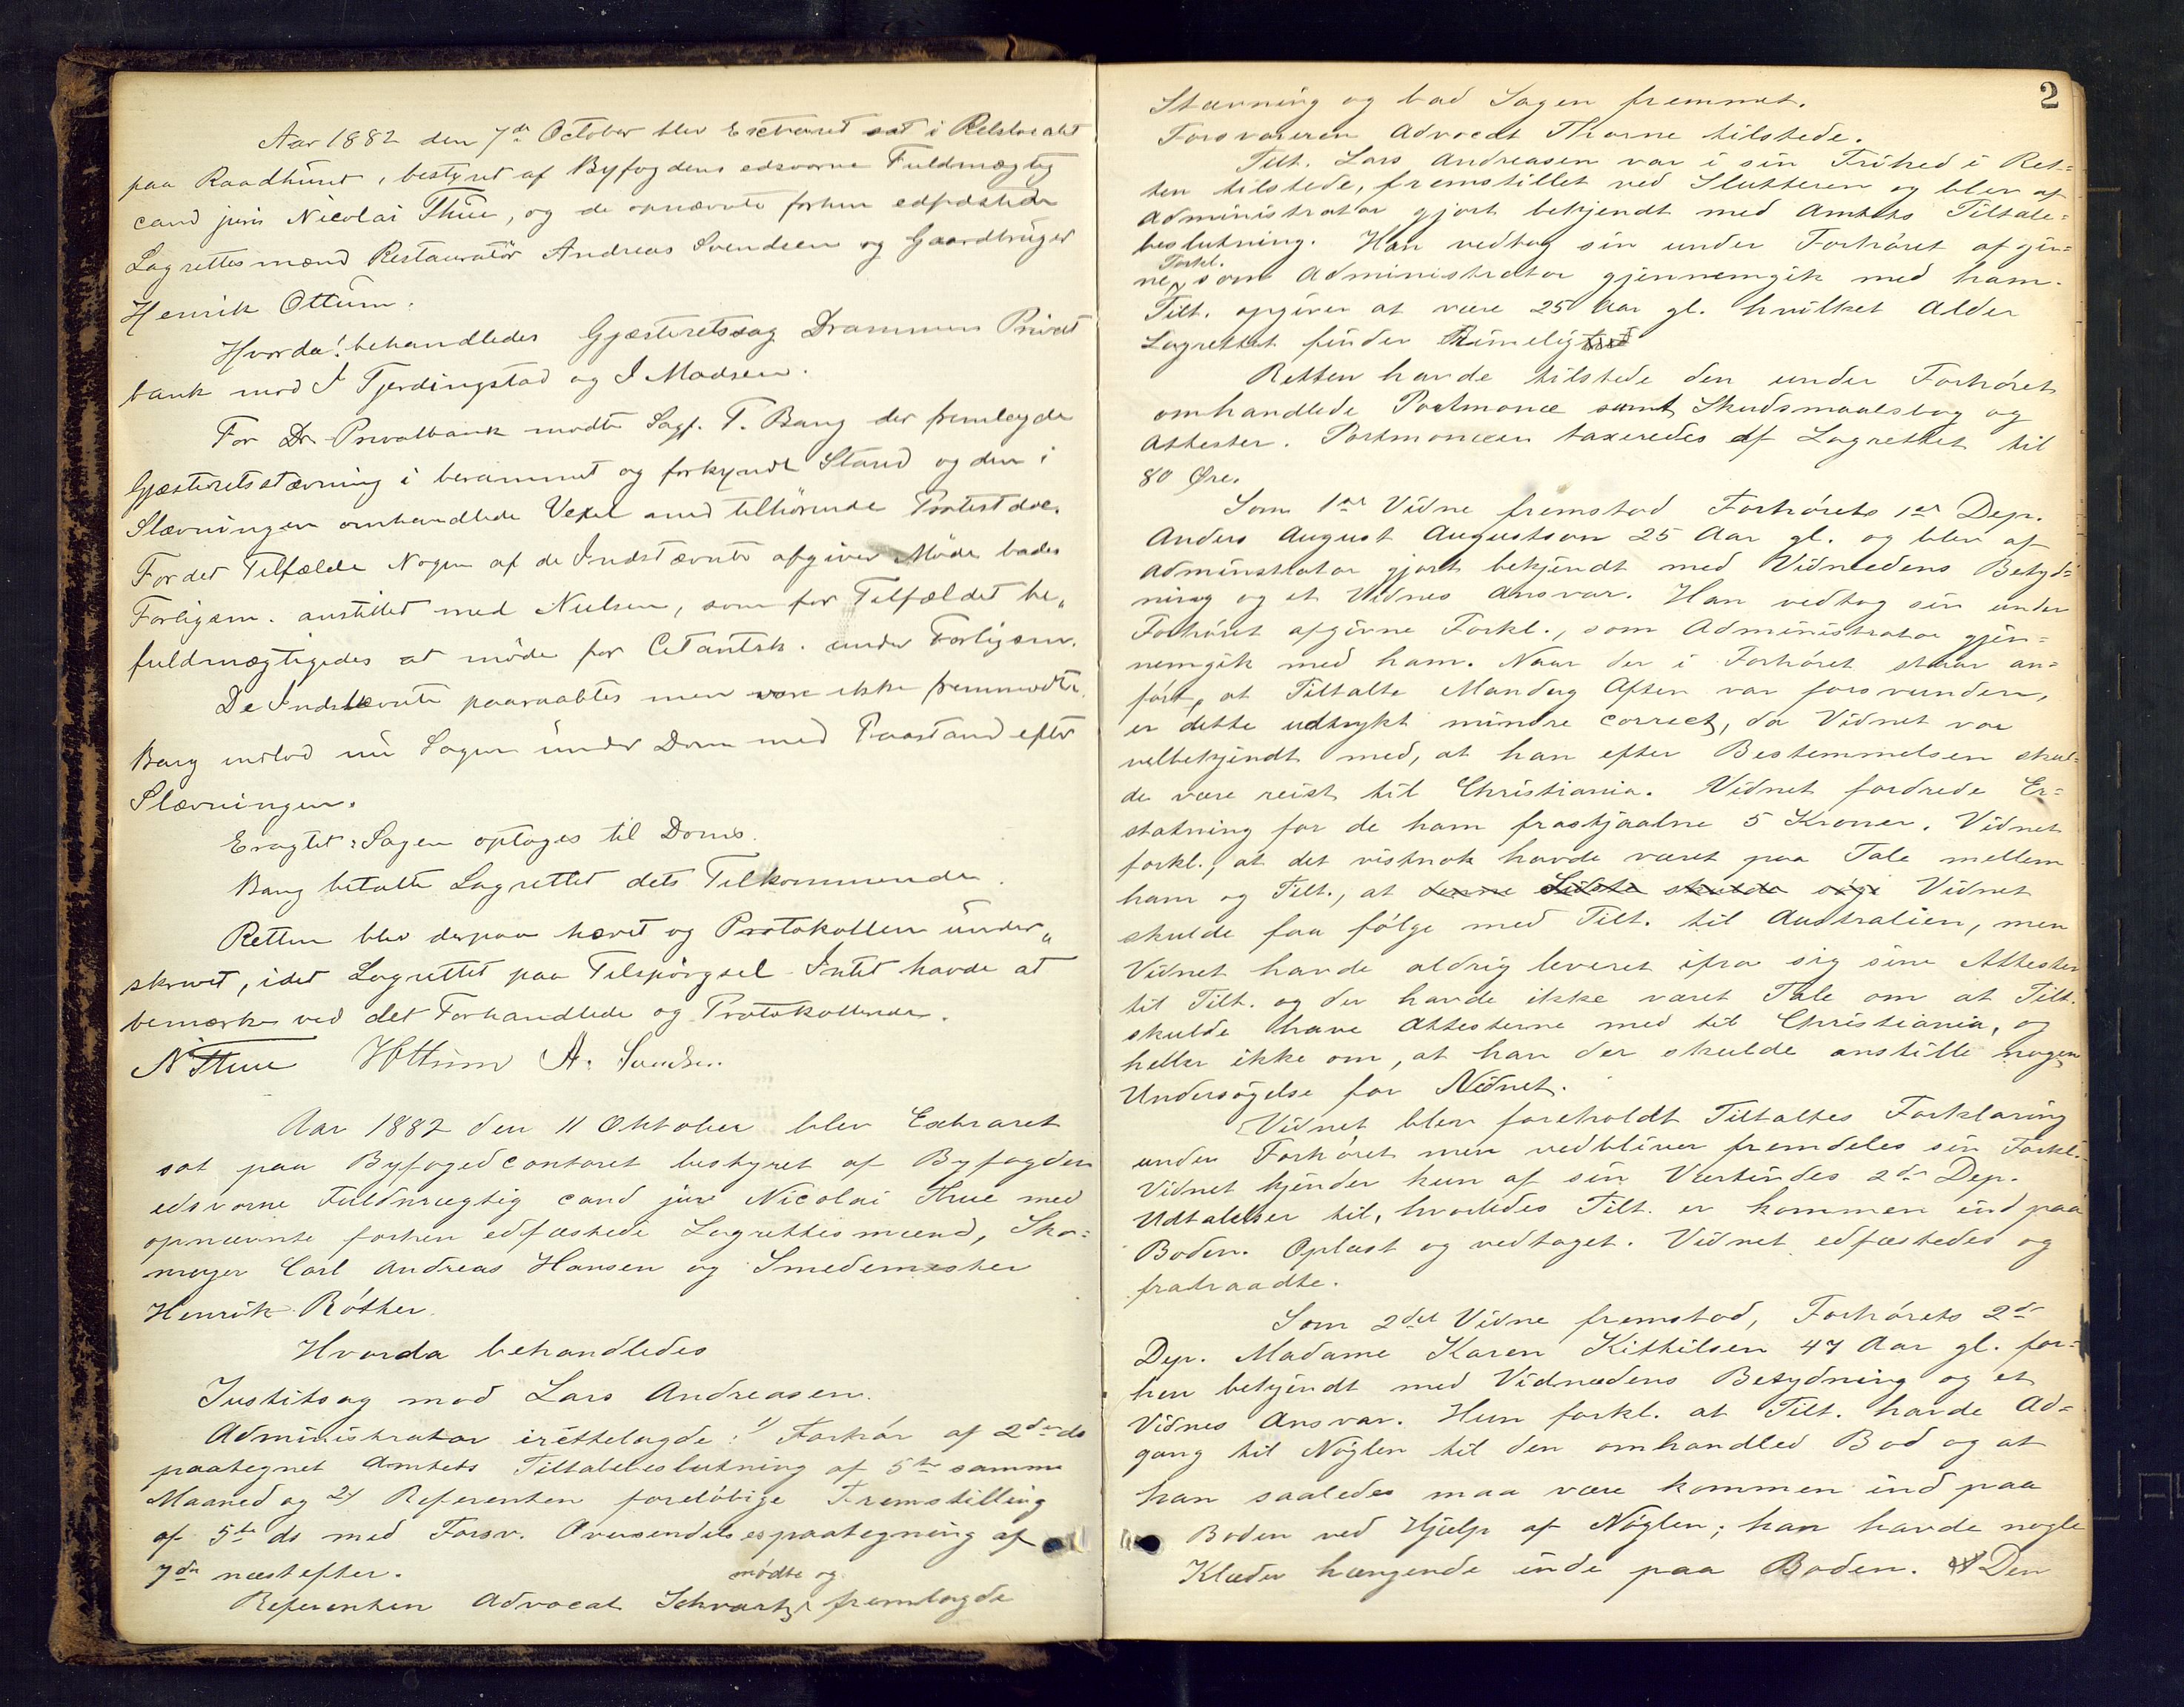 Aar 1882 den 7de October blev Extraret sat i Retslocalet
paa Raadhuset, bestyret af Byfogdens edsvorne Fuldmægtig
cand juris Nicolai Thue, og de opnævnte forhen edfæstede
Lagrettesmænd Restauratör Andreas Svendsen og Gaardbruger
Henrik Ottum.
Hvorda: behandledes Gjæsteretssag Drammens Privat
bank mod I Tjerdingstad og I Madsen.
For Dr. Privatbank mødte Sagf. T. Bang der fremlagde
Gjæsteretsstævning i berammet og forkyndt Stand og den i
Stævningen omhandlede Vexel med tilhörende Protestdoc.
For det Tilfælde Nogen af de Indstævnte afgiver Møde bades
Forligsm. anstillet med Nielsen, som for Tilfældet be„
fuldmægtigedes at møde for Citantsk. under Forligsm.
De Indstævnte paaraabtes men vare ikke fremmødte.
Bang indlod nu Sagen under Dom med Paastand efter
Stævningen.
Eragtet: Sagen optages til Doms.
Bang betalte Lagrettet dets Tilkommende.
Retten blev derpaa hævet og Protokollen under„
skrevet, idet Lagrettet paa Tilspörgsel Intet havde at
bemærke ved det Forhandlede og Protokollerede.
N Thue HOttum A. Svendsen.
Aar 1882 den 11 Oktober blev Extraret
sat paa Byfogedcontoret bestyret af Byfogdens
edsvorne Fuldmægtig cand jure Nicolai Thue med
opnævnte forhen edfæstede Lagrettesmænd, Sko=
mager Carl Andreas Hansen og Smedemester
Henrik Röther.
Hvorda behandledes
Justitsag mod Lars Andreasen.
Administrator irettelagde: 1/ Forhör af 2den ds
paategnet Amtets Tiltalebeslutning af 5te samme
Maaned og 2/ Referenten foreløbige Fremstilling
af 5te ds med Forsv. Oversendelsespaategning af
7de næstefter.
Referenten Advocat Schvartz mødte og fremlagde
2
Stævning og bad Sagen fremmet.
Forsvareren Advocat Thorne tilstede.
Tilt. Lars Andreasen var i sin Frihed i Ret-
ten tilstede, fremstillet ved Slutteren og blev af
Administrator gjort bekjendt med Amtets Tiltale=
beslutning. Han vedtog sin under Forhöret afgiv=
ne Forkl. som Administrator gjennemgik med ham.
Tilt. opgiver at være 25 Aar gl. hvilket Alder
Lagrettet finder Rimelig
Retten havde tilstede den under Forhöret
omhandlede Portmonæ samt Skudsmaalsbog og
Attester. Portmonæen taxeredes af Lagrettet til
80 Øre.
Som 1ste Vidne fremstod Forhörets 1ste Dep.
Anders August Augustson 25 Aar gl. og blev af
Adminstrator gjort bekjendt med Vidneedens Betyd=
ning og et Vidnes Ansvar. Han vedtog sin under
Forhöret afgivne Forkl., som Administrator gjen=
nemgik med ham. Naar der i Forhöret staar an=
fört, at Tiltalte Mandag Aften var forsvunden,
er dette udtrykt mindre correct, da Vidnet var
velbekjendt med, at han efter Bestemmelsen skul=
de være reist til Christiania. Vidnet fordrede Er=
statning for de ham frastjaalne 5 Kroner. Vidnet
forkl., at det vistnok havde været paa Tale mellem
ham og Tilt., at denne Sidste skulde söge Vidnet
skulde faa fölge med Tilt. til Australien, men
Vidnet havde aldrig leveret ifra sig sine Attester
til Tilt. og der havde ikke været Tale om at Tilt.
skulde have Attesterne med til Christiania, og
heller ikke om, at han der skulde anstille nogen
Undersögelse for Vidnet.
Vidnet blev foreholdt Tiltaltes Forklaring
under Forhöret men vedbliver fremdeles sin Forkl.
Vidnet kjender kun af sin Værtindes 2det Dep.
Udtalelser til, hvorledes Tilt. er kommen ind paa
Boden. Oplæst og vedtaget. Vidnet edfæstedes og
fratraadte.
Som 2det Vidne fremstod, Forhörets 2det
Dep. Madame Karen Kittilsen 47 Aar gl. for=
hen bekjendt med Vidneedens Betydning og et
Vidnes Ansvar. Hun forkl. at Tilt. havde Ad=
gang til Nöglen til den omhandled Bod og at
han saaledes maa være kommen ind paa
Boden ved Hjælp af Nöglen; han havde nogle
Klæder hængende inde paa Boden. Den